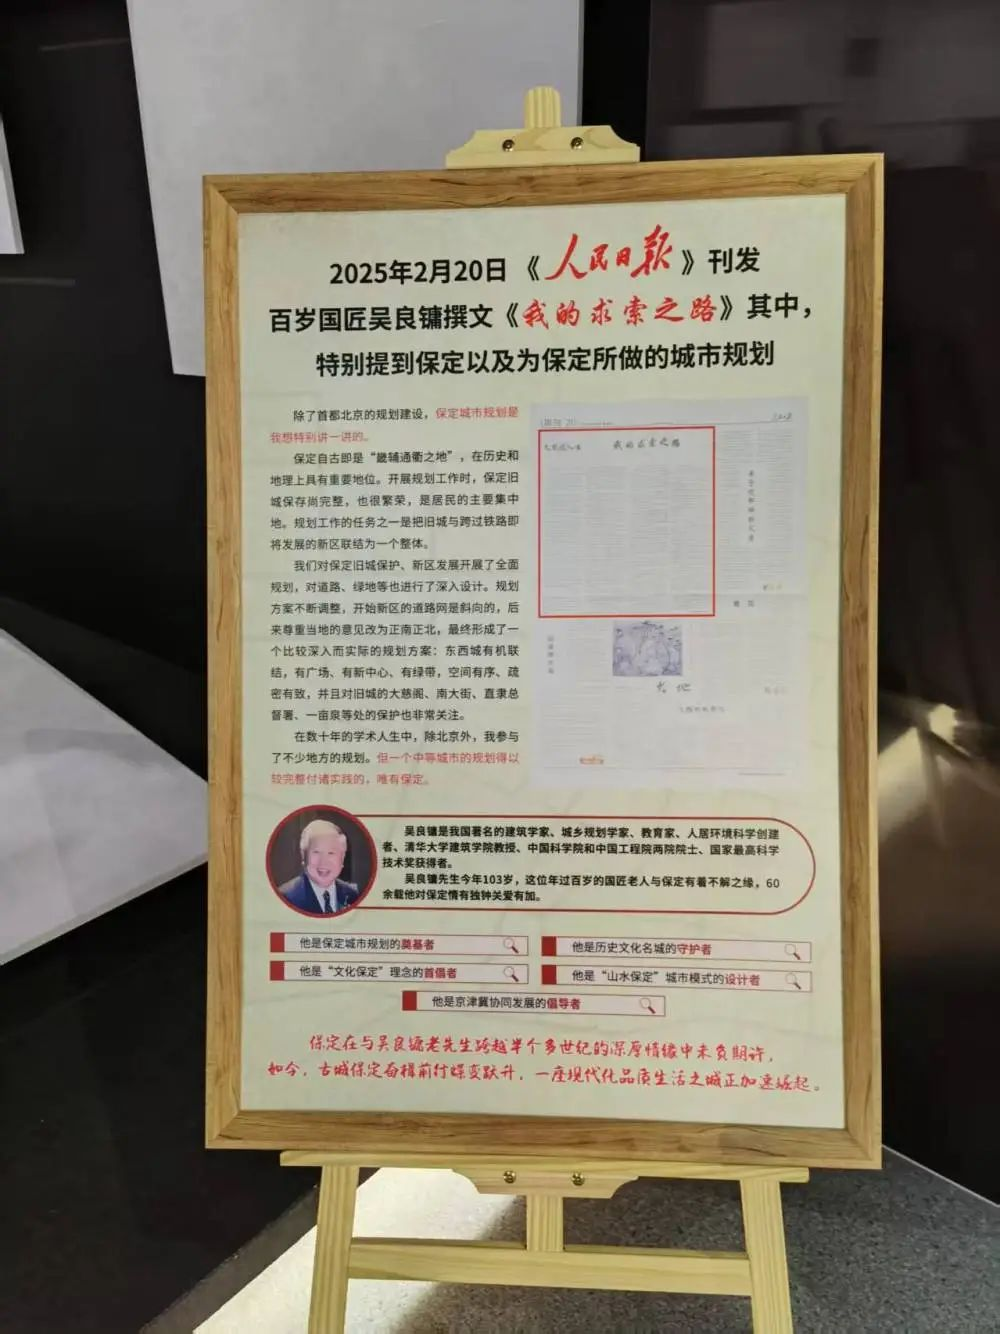 2025年2月20日《人民日报》刊发
百岁国匠吴良镛撰文《我的求索之路》其中，
特别提到保定以及为保定所做的城市规划
除了首都北京的规划建设，保定城市规划是
我想特别讲一讲的。
保定自古即是“畿辅通衢之地”，在历史和
地理上具有重要地位。开展规划工作时，保定旧
城保存尚完整，也很繁荣，是居民的主要集中
地。规划工作的任务之一是把旧城与跨过铁路即
将发展的新区联结为一个整体。
我们对保定旧城保护、新区发展开展了全面
规划，对道路、绿地等也进行了深入设计。规划
方案不断调整，开始新区的道路网是斜向的，后
来尊重当地的意见改为正南正北，最终形成了一
个比较深入而实际的规划方案：东西城有机联
结，有广场、有新中心、有绿带，空间有序、疏
密有致，并且对旧城的大慈阁、南大街、直隶总
督署、一亩泉等处的保护也非常关注。
在数十年的学术人生中，除北京外，我参与
了不少地方的规划。但一个中等城市的规划得以
较完整付诸实践的，唯有保定。
我的求索之路
大地
吴良镛是我国著名的建筑学家、城乡规划学家、教育家、人居环境科学创建
者、清华大学建筑学院教授、中国科学院和中国工程院两院院士、国家最高科学
技术奖获得者。
吴良镛先生今年103岁，这位年过百岁的国匠老人与保定有着不解之缘，60
余载他对保定情有独钟关爱有加。
他是保定城市规划的奠基者
他是历史文化名城的守护者
他是“文化保定”理念的首倡者
他是“山水保定”城市模式的设计者
他是京津冀协同发展的倡导者
保定在与吴良镛老先生跨越半个多世纪的深厚情缘中未负期许，
如今，古城保定奋楫前行蝶变跃升，一座现代化品质生活之城正加速崛起。